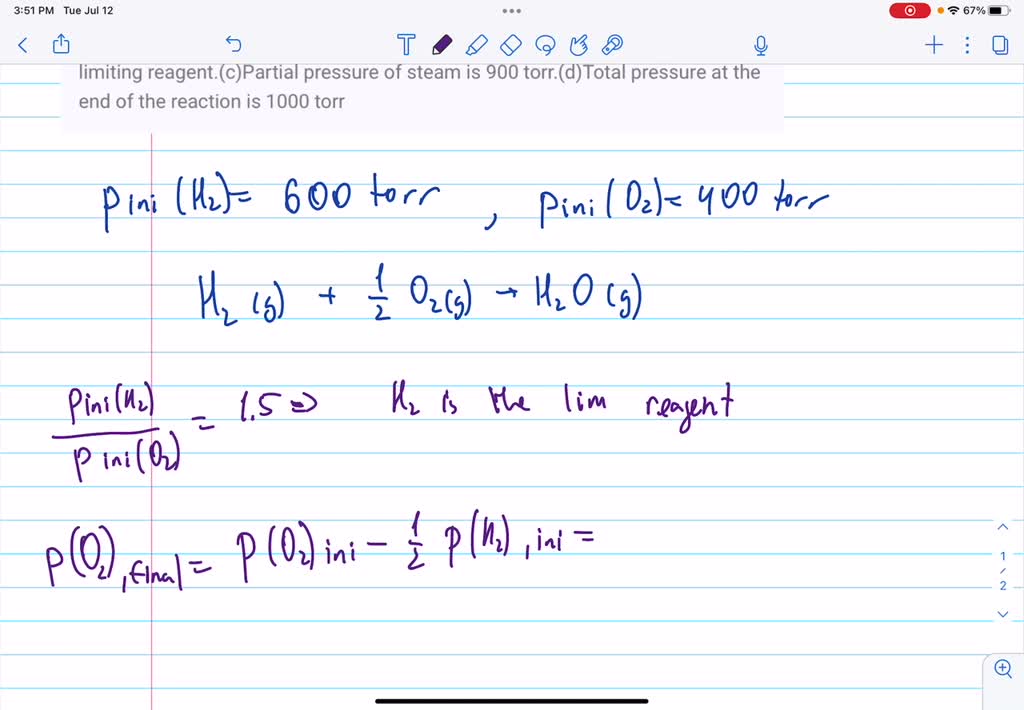 3:51 PM Tue Jul 12
67%
limiting reagent.(c)Partial pressure of steam is 900 torr.(d)Total pressure at the
end of the reaction is 1000 torr
Pini (H₂)= 600 torr , Pini (O₂)= 400 torr
H₂ (g) + 1/2 O₂(g) → H₂O (g)
Pini(H₂) / Pini(O₂) = 1.5 ⇒ H₂ is the lim reagent
P(O₂),final = P(O₂)ini - 1/2 P(H₂),ini =
1
/
2